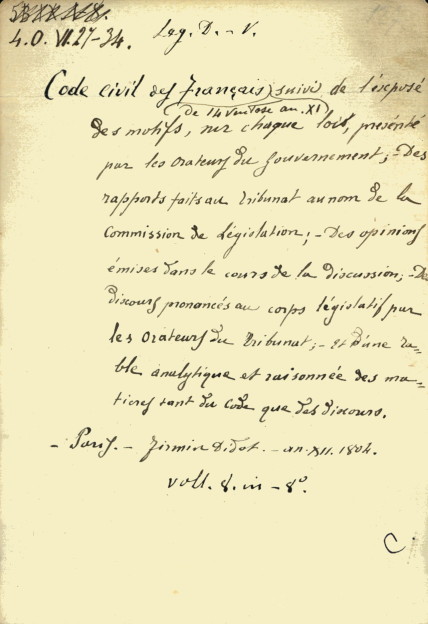 4.O. VI.27-34. Leg. D. - V.
Code civil des Français suivi de l'exposé
(de 14 Ventose an. XI)
des motifs, sur chaque lois, présenté
par les orateurs du Gouvernement; - Des
rapports faits au Tribunat au nom de la
Commission de Législation; - Des opinions
émises dans le cours de la discussion; - Des
discours prononcés au corps législatif par
les orateurs du Tribunat; - et d'une ta=
ble analytique et raisonnée des ma=
tieres tant du Code que des discours.
- Paris. - Firmin Didot. - an. XII. 1804.
voll. 8. in - 8º.
C.